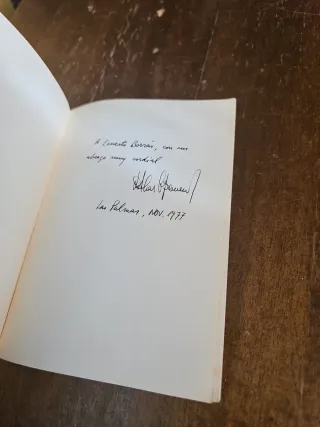 A Ernesto Borrás, con un
abrazo muy cordial
Las Palmas, NOV. 1977